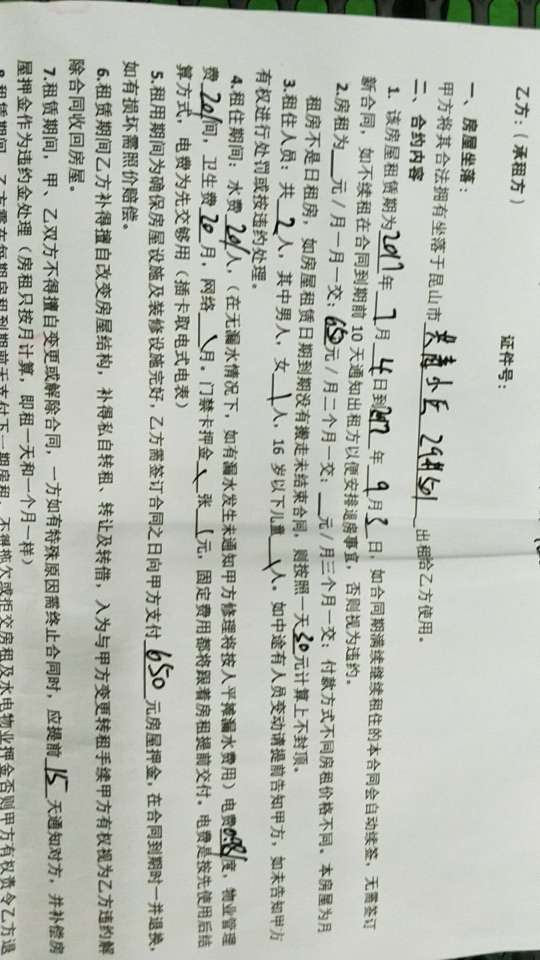 乙方：（承租方） 证件号：
一、房屋坐落：
甲方将其合法拥有坐落于昆山市 共青小区 29# 501 出租给乙方使用。
二、合约内容
1. 该房屋租赁期为2017年 7 月 4 日到2017年 9 月 3 日，如合同期满续继续租住的本合同会自动续签，无需签订
新合同，如不续租在合同到期前 10 天通知出租方以便安排退房事宜，否则视为违约。
2.房租为 元/月一月一交；650元/月二个月一交； 元/月三个月一交；付款方式不同房租价格不同。本房屋为月
租房不是日租房，如房屋租赁日期到期没有搬走未结束合同，则按照一天30元计算上不封顶。
3.租住人员：共 2 人，其中男人，女 1 人，16 岁以下儿童 \ 人。如中途有人员变动请提前告知甲方，如未告知甲方
有权进行处罚或按违约处理。
4.租住期间：水费 20/人，（在无漏水情况下，如有漏水发生未通知甲方修理将按人平摊漏水费用）电费 度，物业管理
费 20/间，卫生费 20 月，网络 \ 月。门禁卡押金 \ 张 元，固定费用都将跟着房租提前交付。电费是按先使用后结
算方式，电费为先交够用（插卡取电式电表）
5.租用期间为确保房屋设施及装修设施完好，乙方需签订合同之日向甲方支付 650 元房屋押金，在合同到期时一并退换，
如有损坏需照价赔偿。
6.租赁期间乙方补得擅自改变房屋结构，补得私自转租、转让及转借，入为与甲方变更转租手续甲方有权视为乙方违约解
除合同收回房屋。
7.租赁期间，甲、乙双方不得擅自变更或解除合同，一方如有特殊原因需终止合同时，应提前 15 天通知对方，并补偿房
屋押金作为违约金处理（房租只按月计算，即租一天和一个月一样）
8.租赁期间，乙方需在每期房租到期前 天支付下一期房租，不得拖欠或拒交房租及水电物业押金否则甲方有权责令乙方退